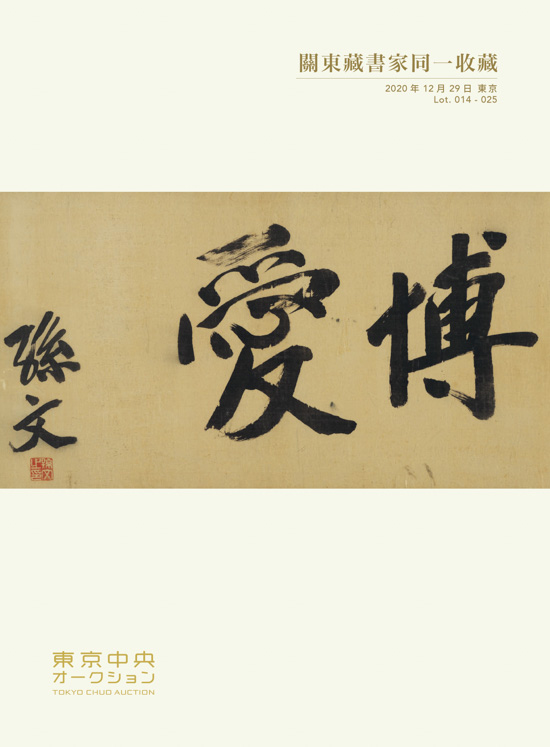 關東藏書家同一收藏
2020 年 12 月 29 日 東京
Lot. 014 - 025
博愛
孫文
東京中央
オークション
TOKYO CHUO AUCTION